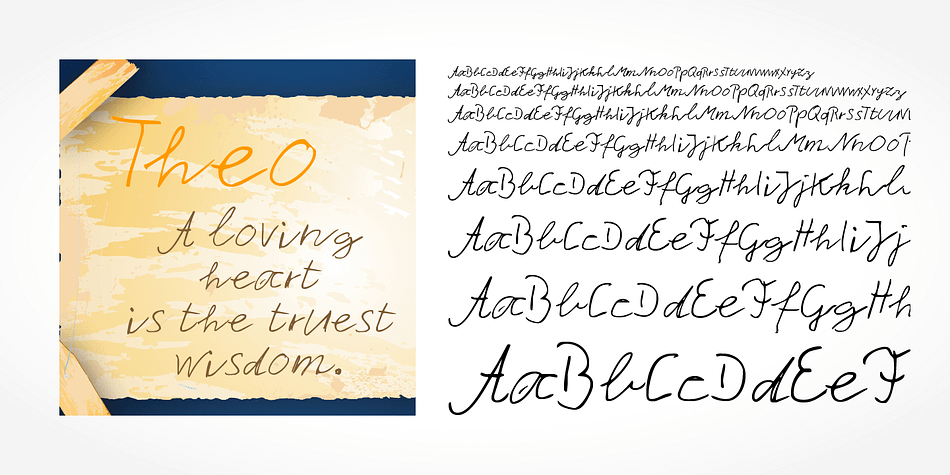 Theo
A loving
heart
is the truest
wisdom.
AaBbCcDdEeFfGgHhIiJjKkLlMmNnOoPpQqRrSsTtUuVvWwXxYyZz
AaBbCcDdEeFfGgHhIiJjKkLlMmNnOoPpQqRrSsTtUuVvWwXxYyZz
AaBbCcDdEeFfGgHhIiJjKkLlMmNnOoPpQqRrSsTtUuV
AaBbCcDdEeFfGgHhIiJjKkLlMmNnOoP
AaBbCcDdEeFfGgHhIiJjKkLl
AaBbCcDdEeFfGgHhIiJj
AaBbCcDdEeFfGgHh
AaBbCcDdEeF